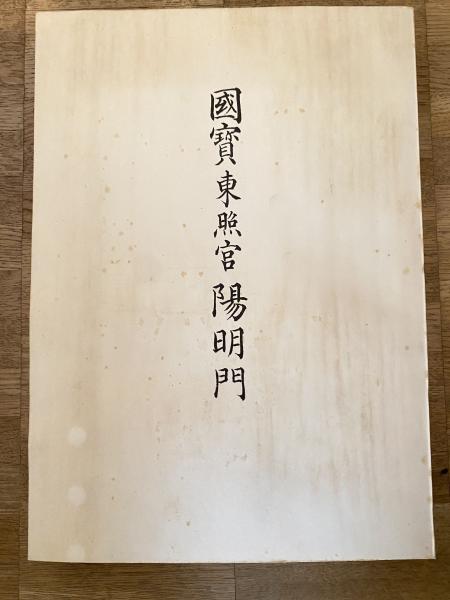 國寶東照宮陽明門